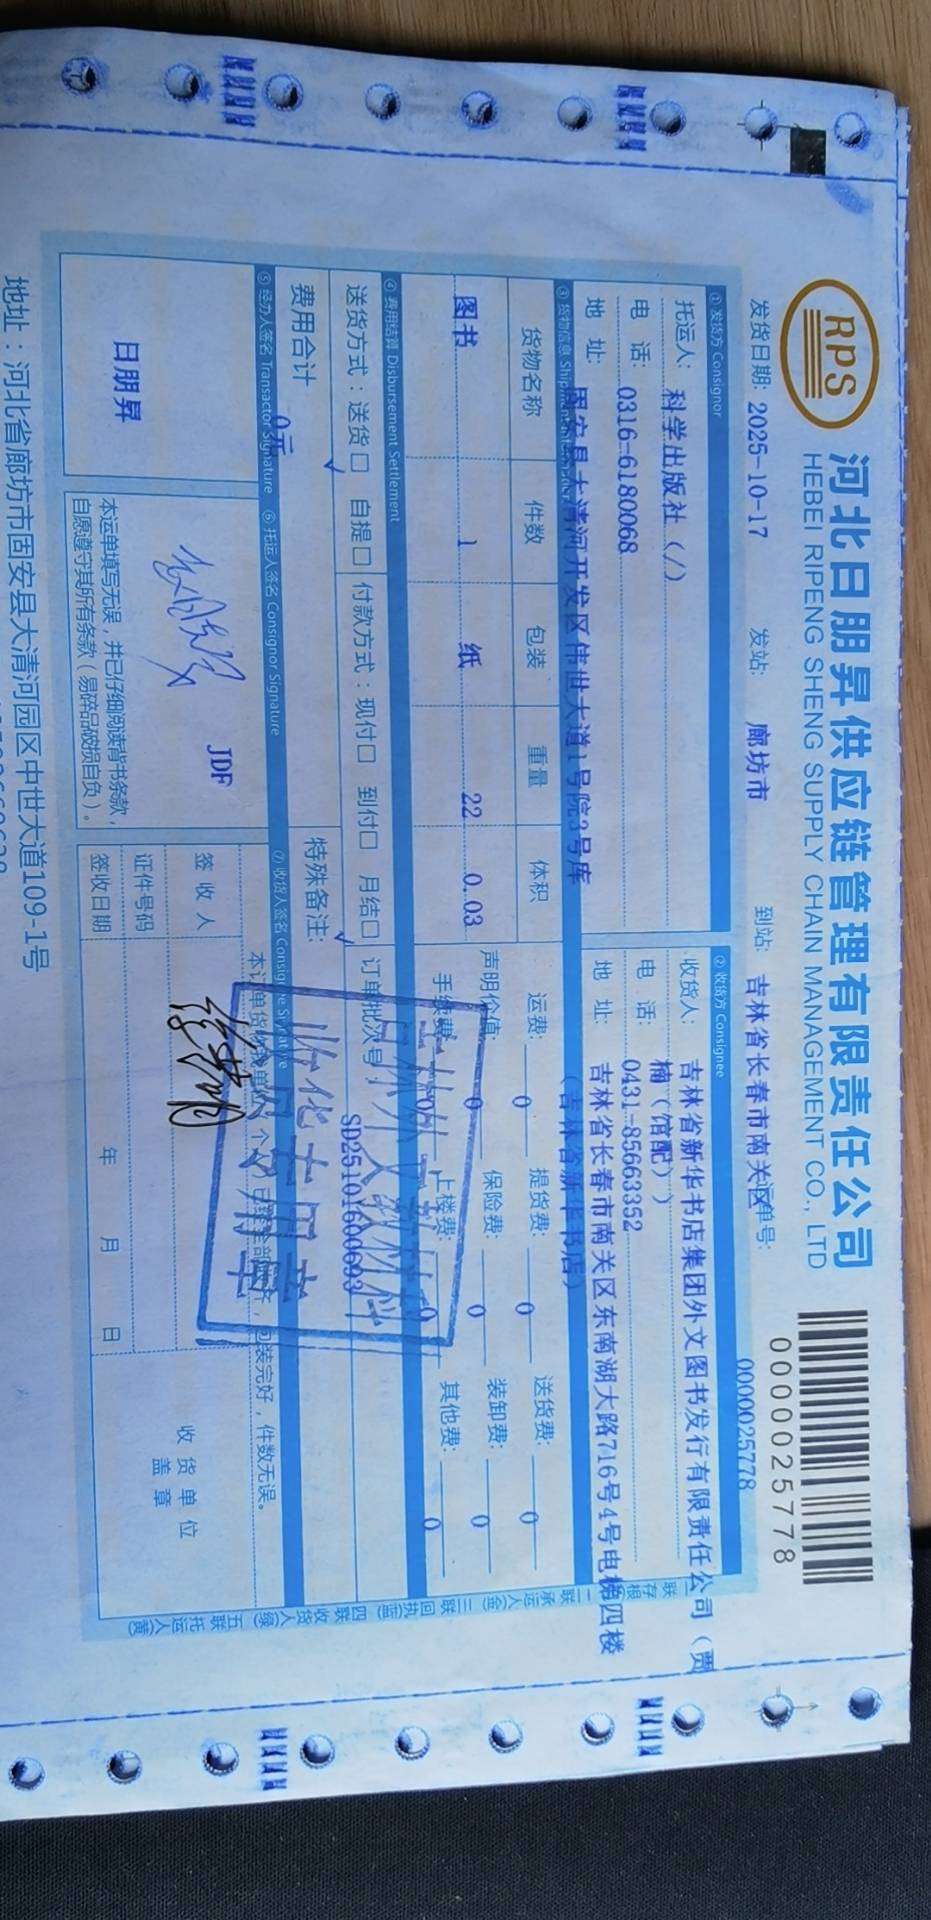 RPS
河北日朋昇供应链管理有限责任公司
HEBEI RIPENG SHENG SUPPLY CHAIN MANAGEMENT CO., LTD
0000025778
发货日期: 2025-10-17 发站: 廊坊市 到站: 吉林省长春市南关区 单号:
0000025778
① 发货方 Consignor
② 收货方 Consignee
托运人: 科学出版社（/）
收货人: 吉林省新华书店集团外文图书发行有限责任公司（贾
楠（馆配））
电 话: 0316-6180068
电 话: 0431-85663352
地 址: 固安县大清河开发区伟世大道1号院3号库
地 址: 吉林省长春市南关区东南湖大路716号4号电梯四楼
（吉林省新华书店）
③ 货物信息
货物名称 件数 包装 重量 体积
图书 1 纸 22 0.03
运费: 0 提货费: 0 送货费: 0
声明价值: 0 保险费: 0 装卸费: 0
手续费: 0 上楼费: 0 其他费: 0
④ 费用结算 Disbursement Settlement
送货方式：送货□ 自提□ 付款方式：现付□ 到付□ 月结□ 订单批次号:
✓ ✓
SD2510160069
费用合计 0元
特殊备注:
⑤ 经办人签名 Transactor Signature
⑥ 托运人签名 Consignor Signature
⑦ 收货人签名 Consignee Signature
日朋昇
JDF
本运单填写无误，并已仔细阅读背书条款，
自愿遵守其所有条款（易碎品破损自负）。
包装完好，件数无误。
签 收 人
证件号码
签收日期 年 月 日
收 货 单 位
盖 章
一联存根
二联承运人(金)
三联回执(蓝)
四联收货人(绿)
五联托运人(黄)
地址：河北省廊坊市固安县大清河园区中世大道109-1号